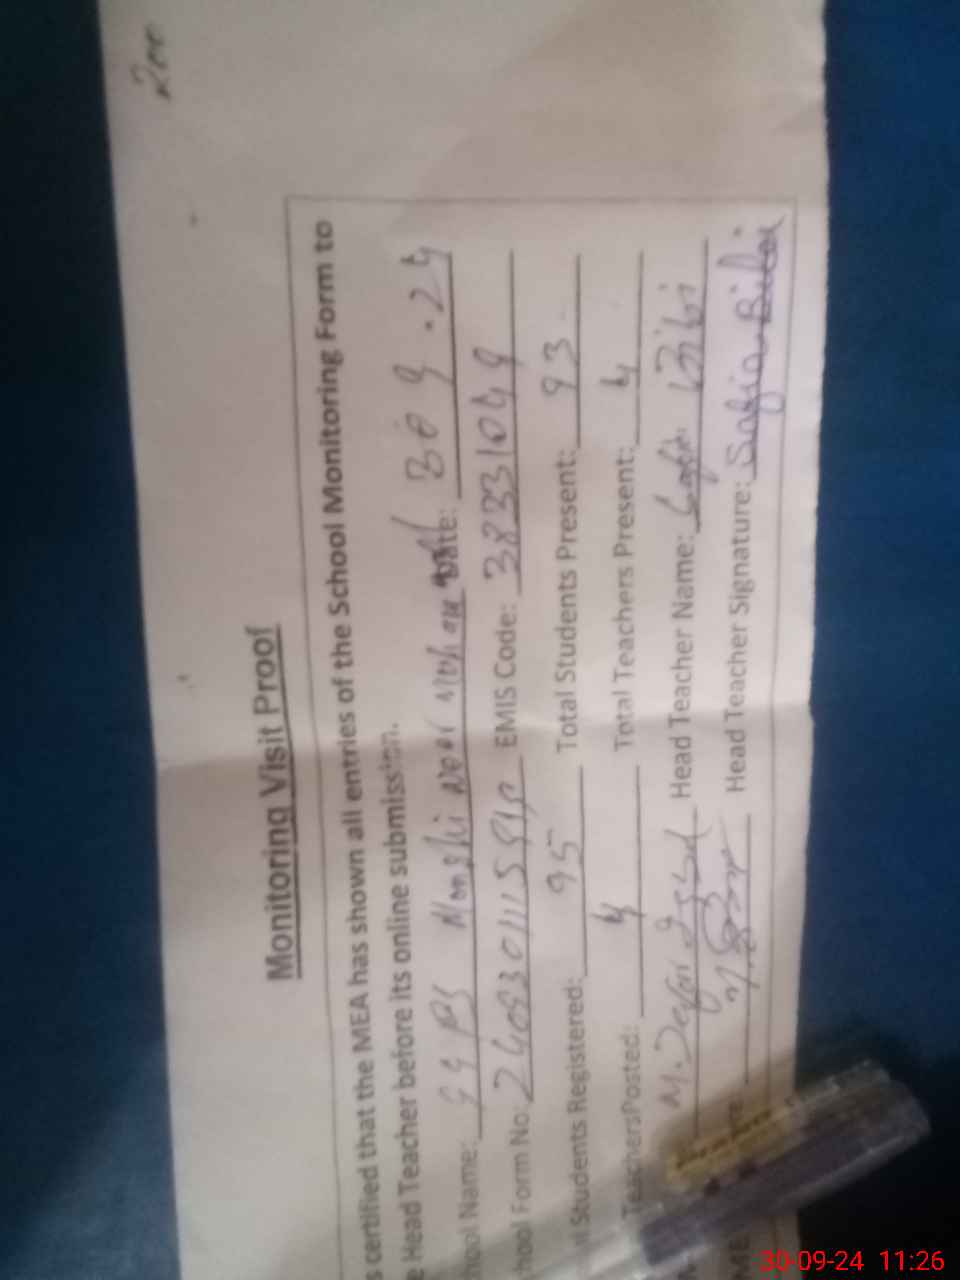 Monitoring Visit Proof
s certified that the MEA has shown all entries of the School Monitoring Form to
e Head Teacher before its online submission.
hool Name: GGPS Monshi Noor Mohammad Date: 30 9 .24
hool Form No: EMIS Code: 38331049
al Students Registered: 95 Total Students Present: 93
TeachersPosted: 4 Total Teachers Present: 4
M. Head Teacher Name: Safia Bibi
ME Head Teacher Signature: Safia Bibi
30-09-24 11:26